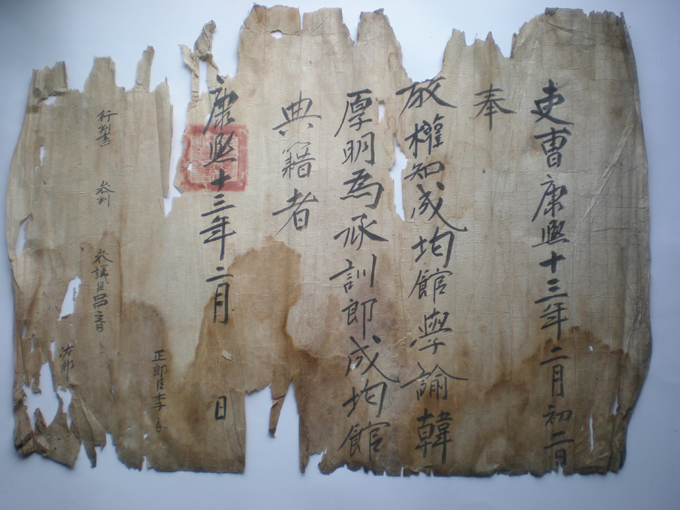 吏曹康熙十三年二月初二日
奉
敎權知成均館學諭韓
厚明爲承訓郎成均館
典籍者
康熙十三年二月 日
行判書
參判
參議臣呂
正郎臣李
佐郎